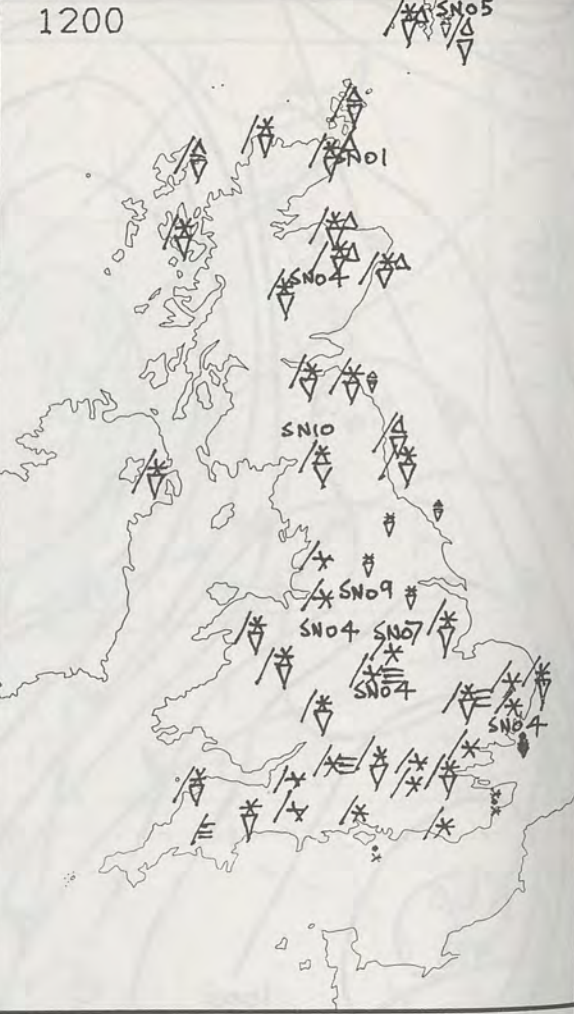 1200
SN05
SN01
SN04
SN10
SN09
SN04 SN07
SN04
SN04